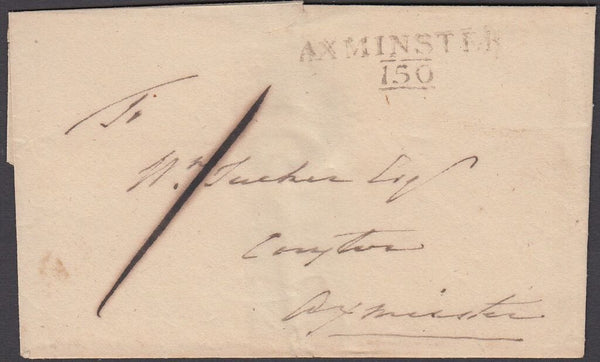 AXMINSTER
150
To
Wm Tucker Esq
Coryton
Axminster